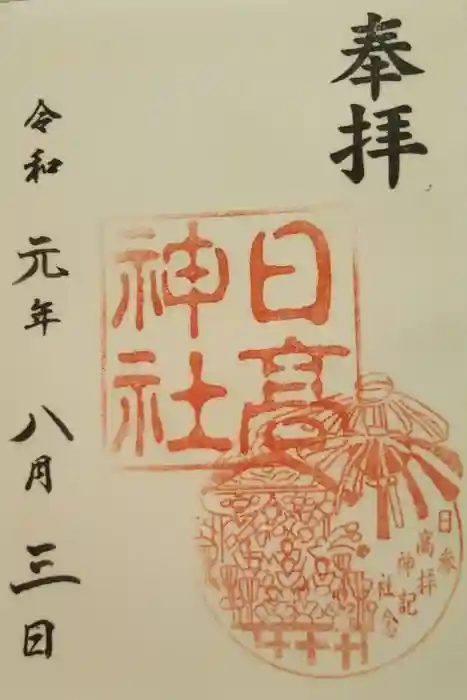 奉拝
日高
神社
日高神社
参拝記念
令和元年八月三日